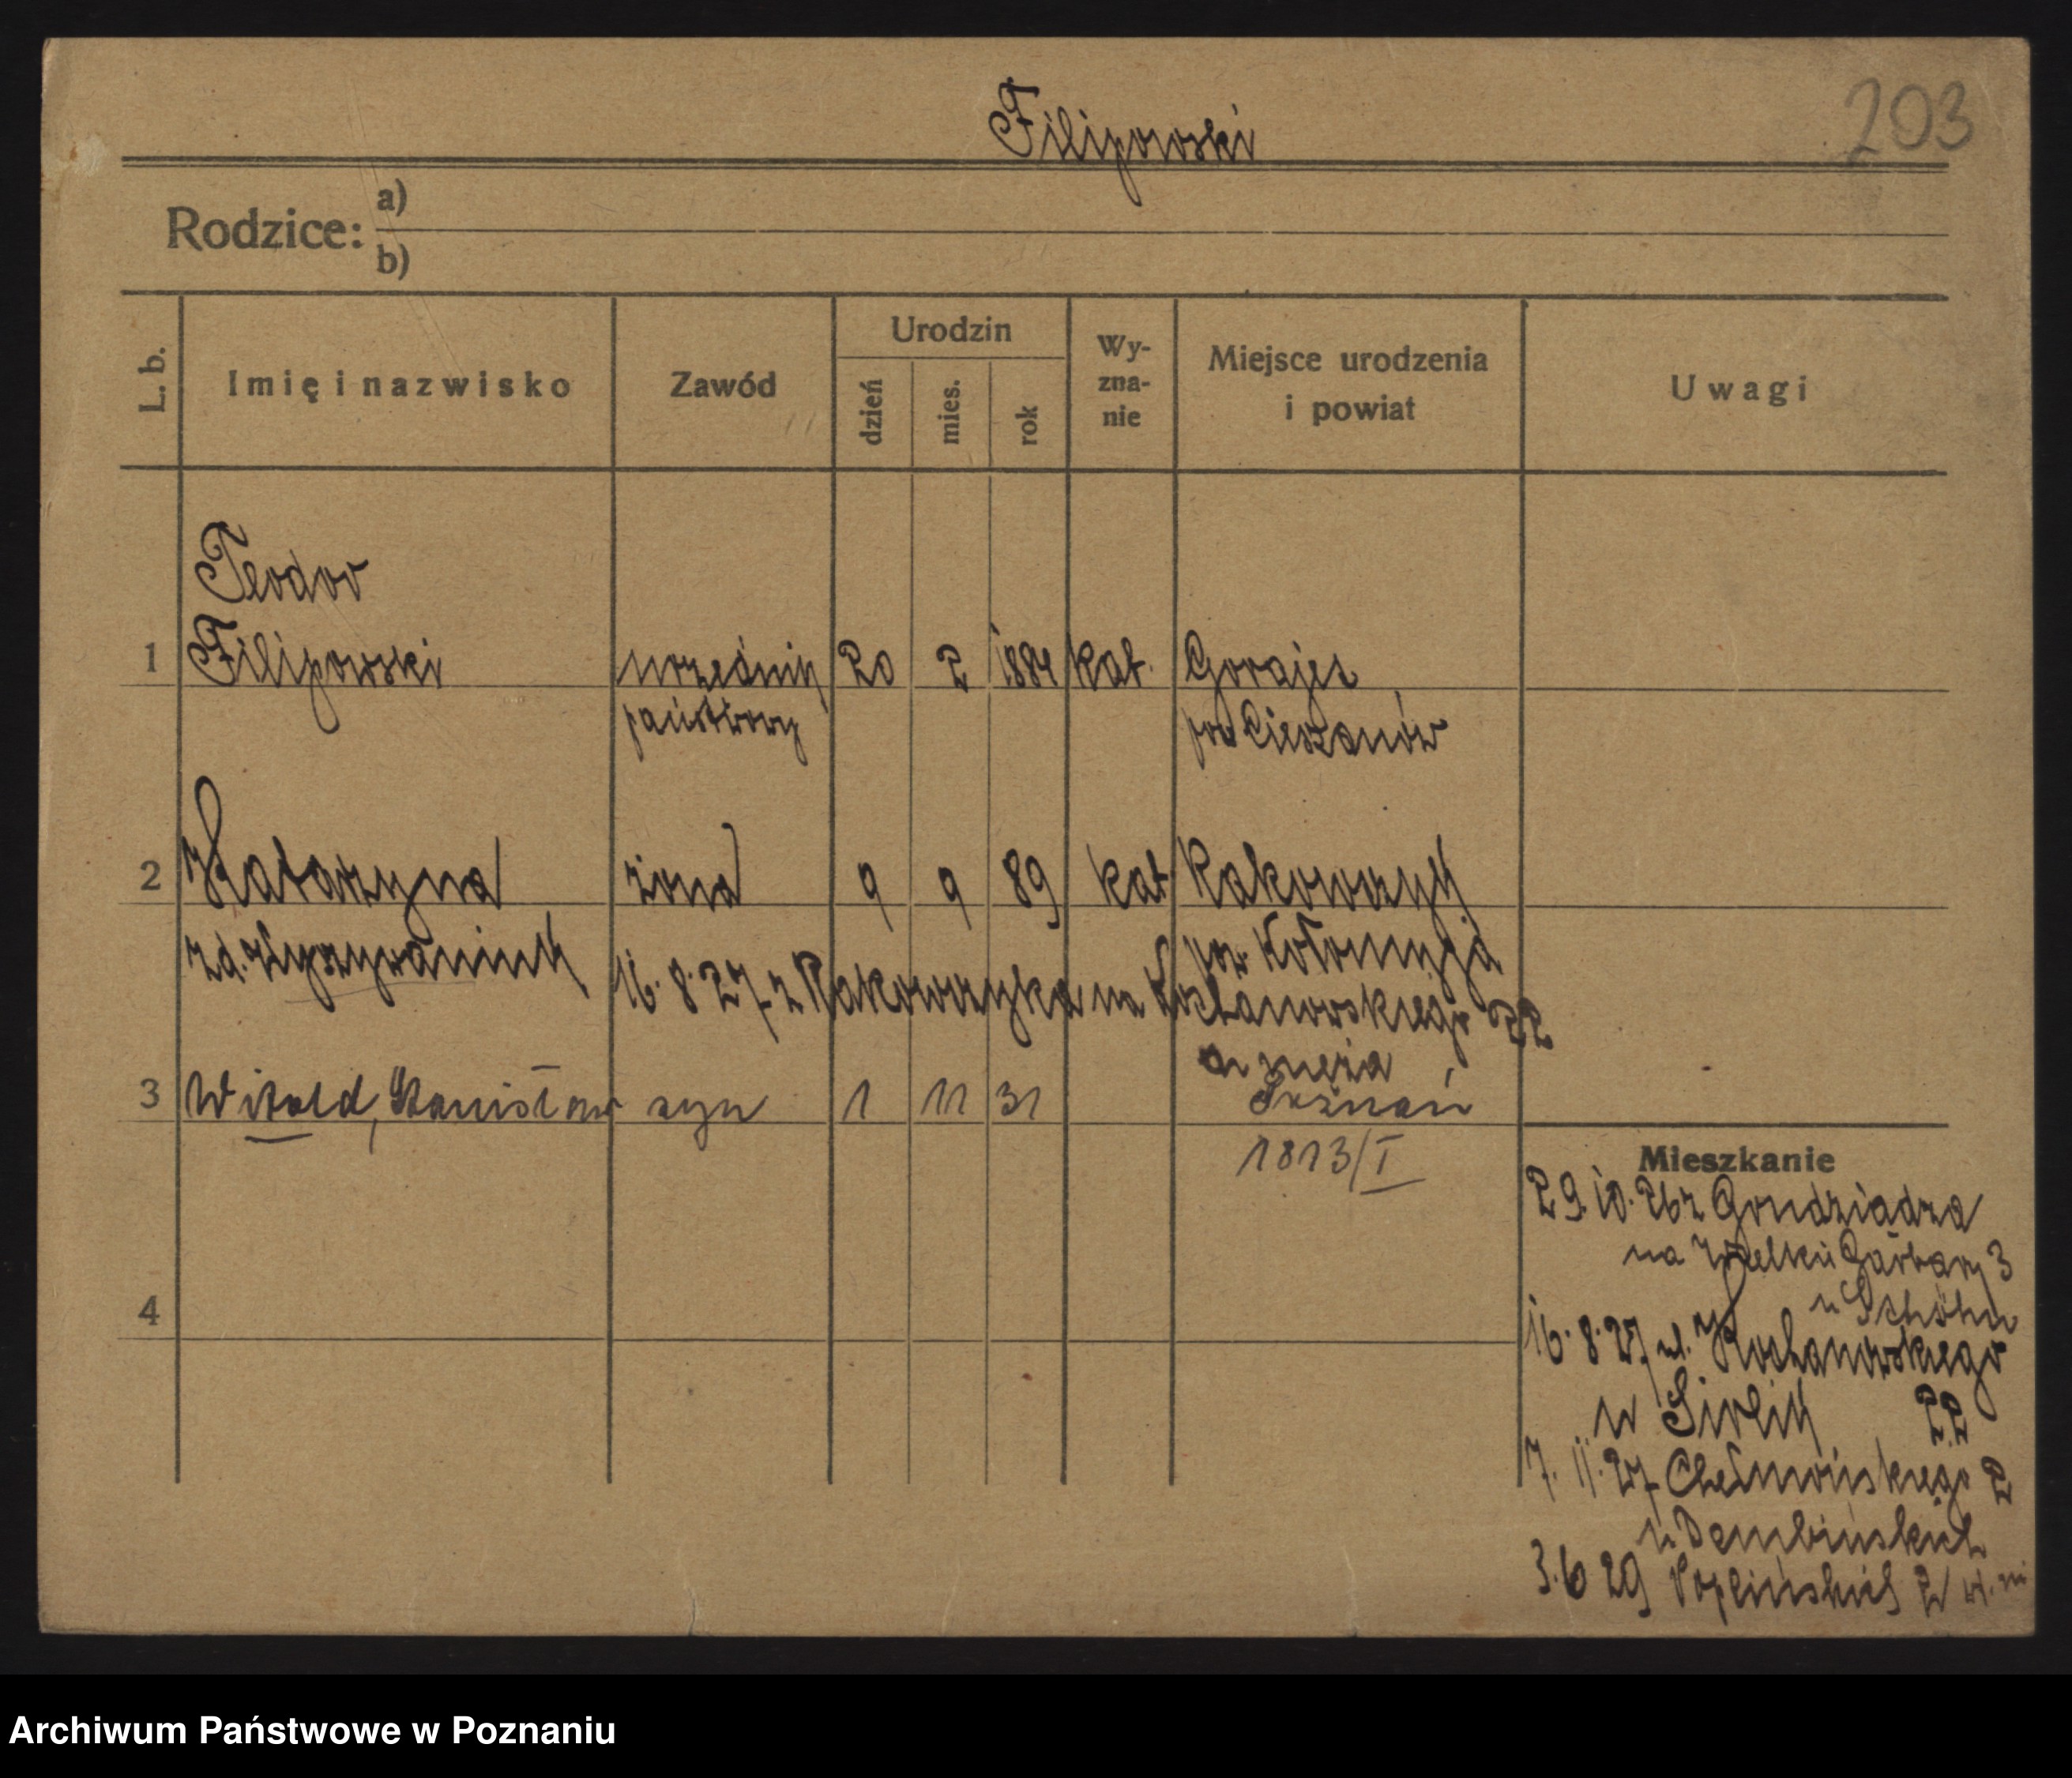 Filipowski
203
Rodzice: a)
b)
L. b.
Imię i nazwisko
Zawód
Urodzin
dzień
mies.
rok
Wy-
zna-
nie
Miejsce urodzenia
i powiat
Uwagi
Teodor
1 Filipowski urzędnik 20 2 1884 kat. Gorajec
państwowy pow Cieszanów
2 Katarzyna żona 9 9 89 kat Rakowczyk
zd. pow. Kołomyja
16. 8. 27 z Rakowczyka na Kochanowskiego 22
męża
3 Witold, Stanisław syn 1 11 31 Poznań
1813/I
Mieszkanie
29. 10. 26 z Grudziądza
na Wielkie Garbary 3
u Schöhn
16. 8. 27 ul. Kochanowskiego
22
7. 11. 27 Chełmońskiego 2
u Dembińskich
3. 6 29 Poplińskich 2
4
Archiwum Państwowe w Poznaniu